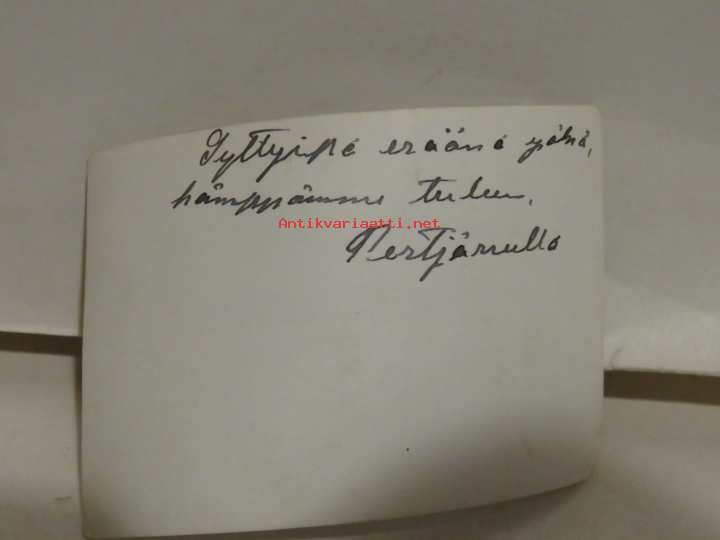 Syttyipä eräänä yönä,
kämppämme tuleen.
Antikvariaatti.net
Perkjärvellä